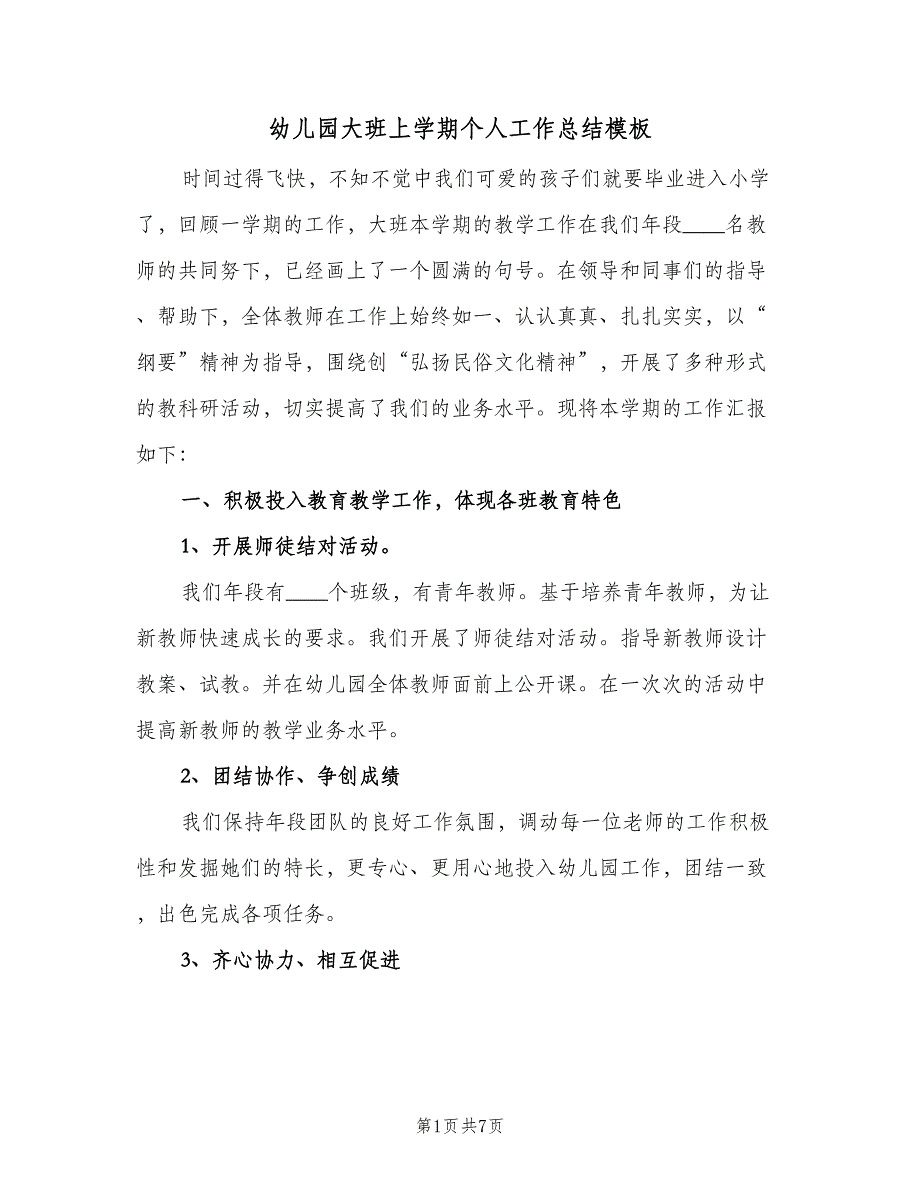 幼儿园大班上学期个人工作总结模板
时间过得飞快，不知不觉中我们可爱的孩子们就要毕业进入小学
了，回顾一学期的工作，大班本学期的教学工作在我们年段____名教
师的共同努下，已经画上了一个圆满的句号。在领导和同事们的指导
、帮助下，全体教师在工作上始终如一、认认真真、扎扎实实，以“
纲要”精神为指导，围绕创“弘扬民俗文化精神”，开展了多种形式
的教科研活动，切实提高了我们的业务水平。现将本学期的工作汇报
如下：
一、积极投入教育教学工作，体现各班教育特色
1、开展师徒结对活动。
我们年段有____个班级，有青年教师。基于培养青年教师，为让
新教师快速成长的要求。我们开展了师徒结对活动。指导新教师设计
教案、试教。并在幼儿园全体教师面前上公开课。在一次次的活动中
提高新教师的教学业务水平。
2、团结协作、争创成绩
我们保持年段团队的良好工作氛围，调动每一位老师的工作积极
性和发掘她们的特长，更专心、更用心地投入幼儿园工作，团结一致
，出色完成各项任务。
3、齐心协力、相互促进
第1页共7页